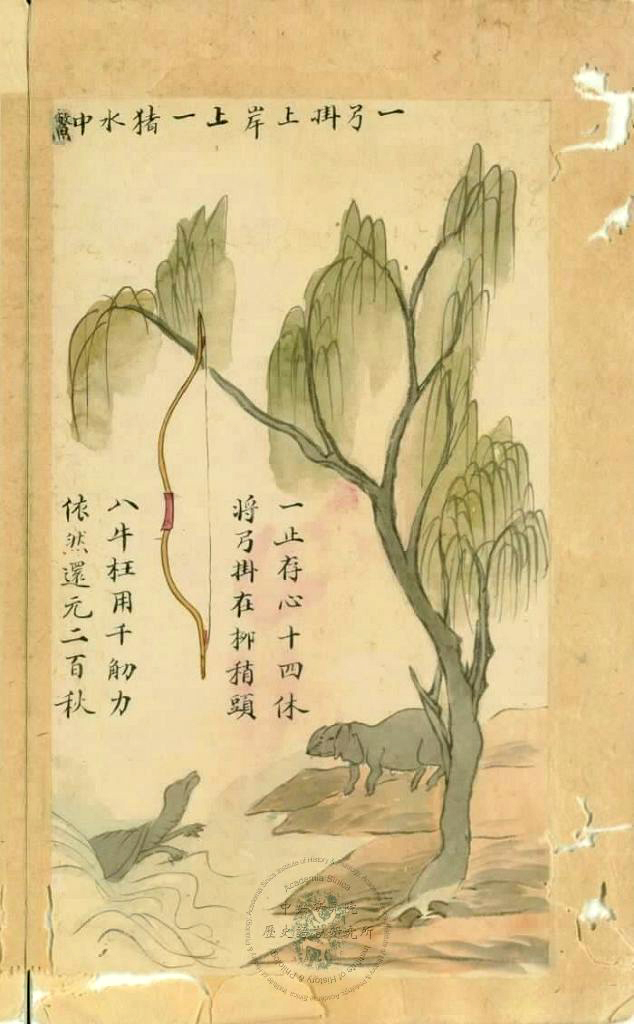 一弓掛上岸上一猪水中
一止存心十四休
將弓掛在柳稍頭
八牛枉用千觔力
依然還元二百秋
Academia Sinica
中央研究院
歷史語言研究所
Institute of History & Philology